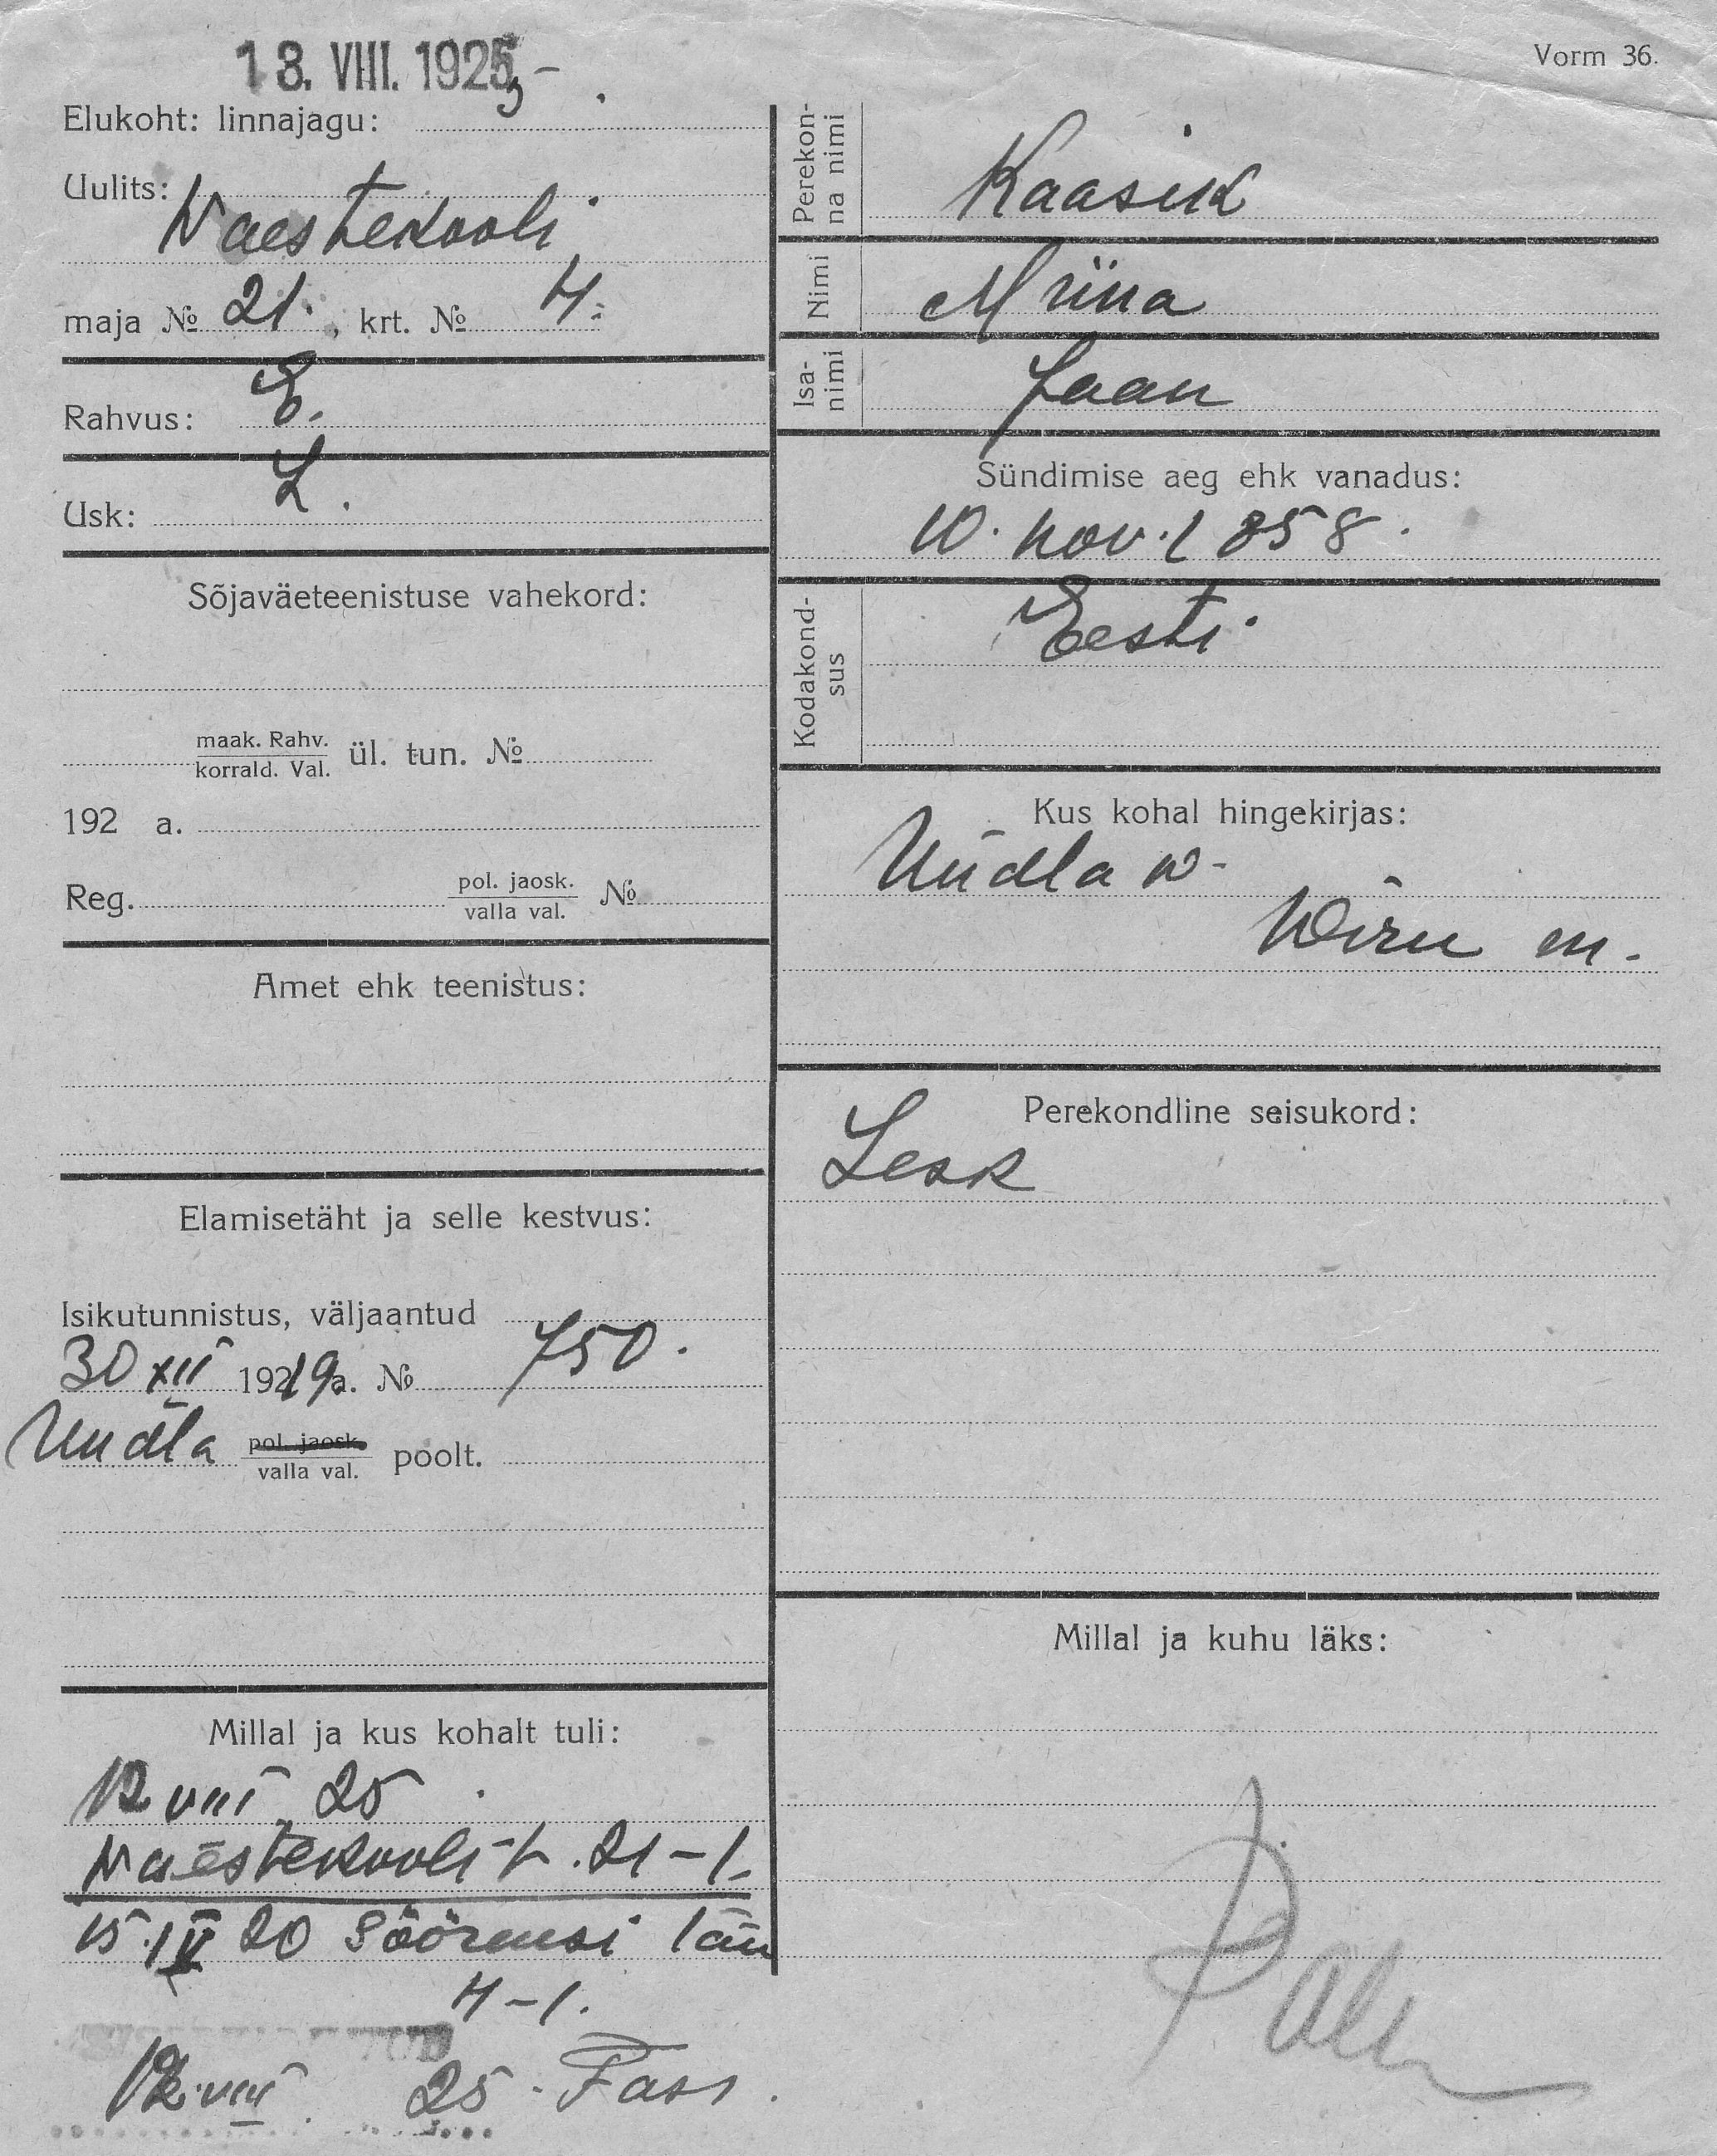 13. VIII. 1925
Vorm 36.
Elukoht: linnajagu:
Uulits:
Waestekooli
maja № 21., krt. № 4.
Rahvus: E.
Usk: L.
Sõjaväeteenistuse vahekord:
maak. Rahv.
korrald. Val. ül. tun. №
192 a.
Reg. pol. jaosk.
valla val. №
Amet ehk teenistus:
Elamisetäht ja selle kestvus:
Isikutunnistus, väljaantud
30 XII 19219a. № 750.
Undla pol. jaosk.
valla val. poolt.
Millal ja kus kohalt tuli:
12 VIII 25
Waestekooli t. 21-1.
15.IV 20 Sõõrmusi tän
4-1.
12.VIII 25.
Perekon-
na nimi
Kaasik
Nimi
Miina
Isa-
nimi
Jaan
Sündimise aeg ehk vanadus:
10. nov. 1858.
Kodakond-
sus
Eesti
Kus kohal hingekirjas:
Undla w.
Wiru m.
Perekondline seisukord:
Lesk
Millal ja kuhu läks: